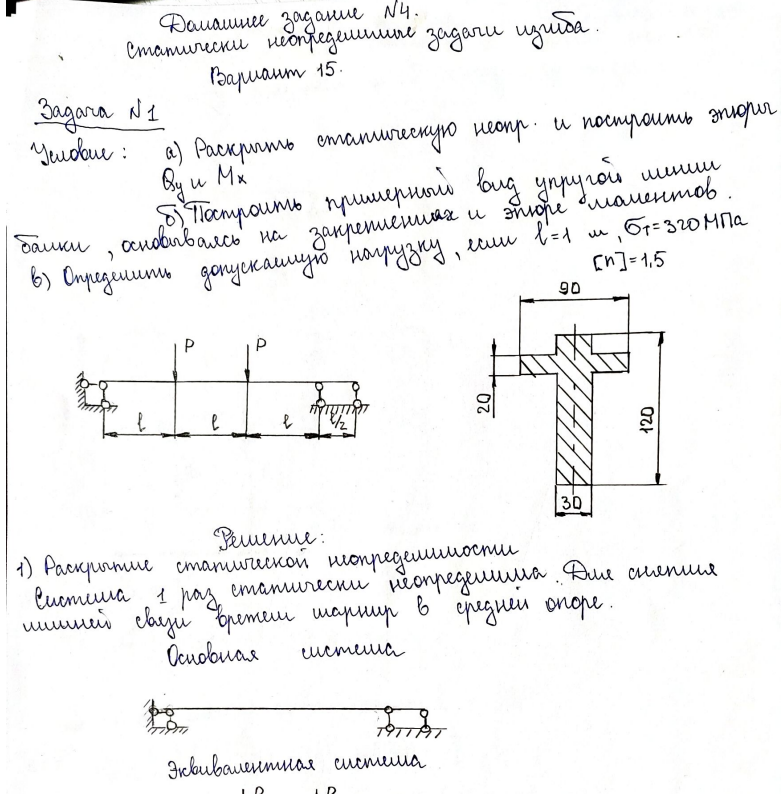 Домашнее задание №4.
Статически неопределимые задачи изгиба.
Вариант 15.
Задача №1
Условие: а) Раскрыть статическую неопр. и построить эпюры
Qy и Mx
б) Построить примерный вид упругой линии
балки, основываясь на закреплениях и эпюре моментов.
в) Определить допускаемую нагрузку, если l=1 м, σт=320МПа
[n]=1,5
90
P P
20
120
l l l l/2
30
Решение:
1) Раскрытие статической неопределимости
Система 1 раз статически неопределима. Для снятия
лишней связи врежем шарнир в средней опоре.
Основная система
Эквивалентная система
P P